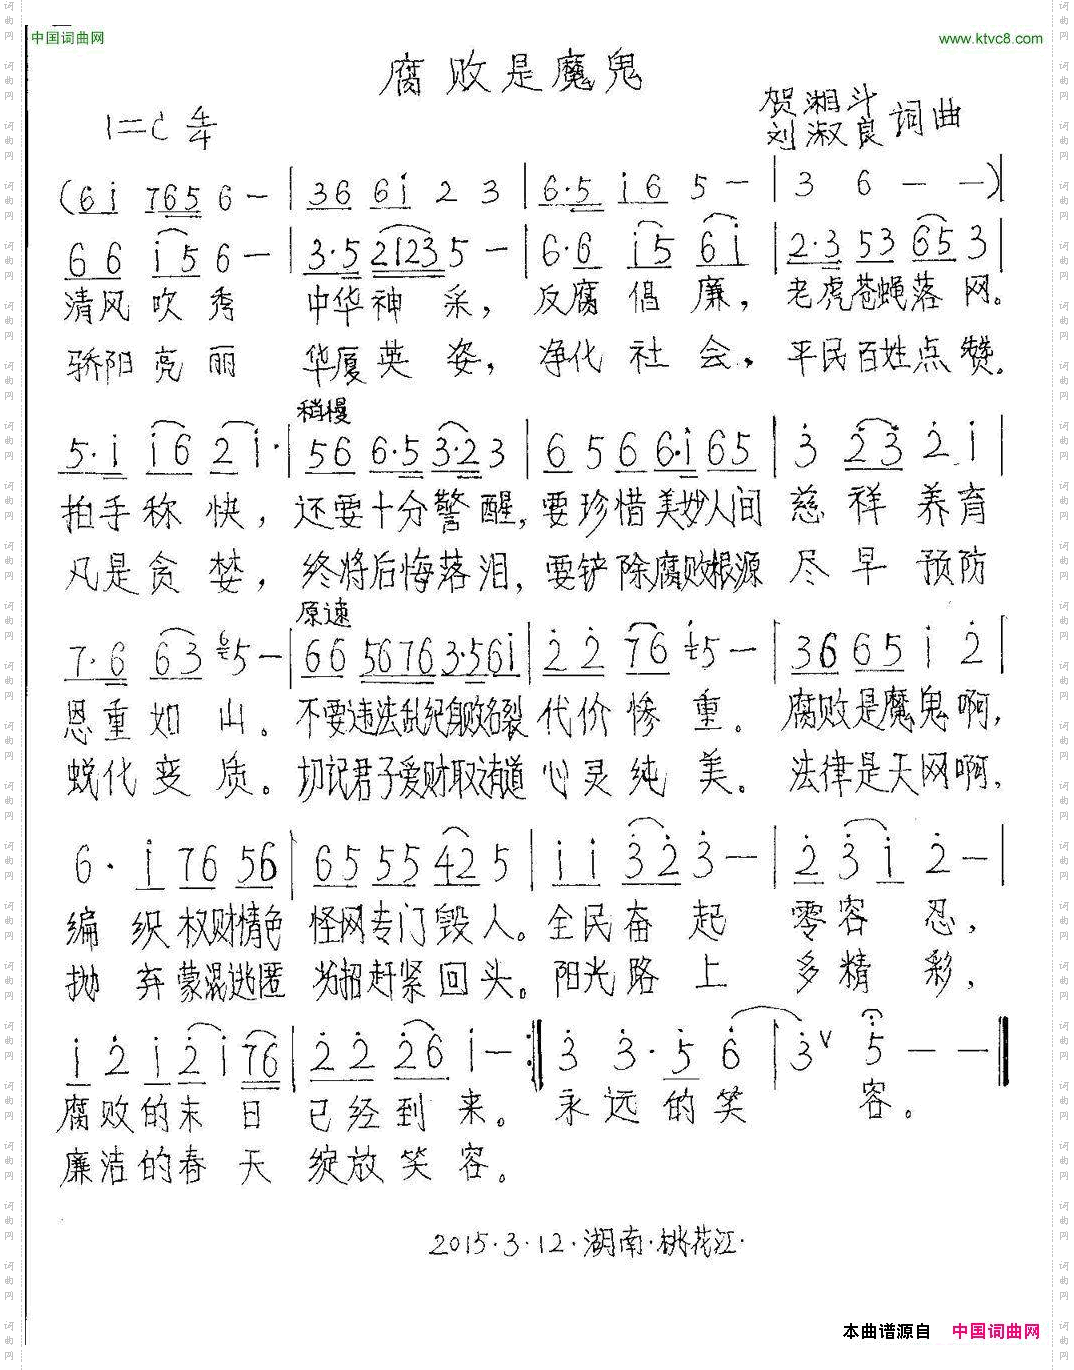 中国词曲网
www.ktvc8.com
腐败是魔鬼
1=C 4/4
贺湘斗
刘淑良 词曲
(6i 765 6 - | 36 6i 2 3 | 6·5 i6 5 - | 3 6 - -)|
66 i5 6 - | 3·5 2123 5 - | 6·6 i5 6i | 2·3 53 65 3 |
清风吹秀 中华神采，反腐倡廉，老虎苍蝇落网。
骄阳亮丽 华厦英姿，净化社会，平民百姓点赞。
稍慢
5·i i6 2i· | 56 6·5 3·2 3 | 6 5 6 6·i 65 | 3 2 3 2 i |
拍手称快，还要十分警醒，要珍惜美妙人间 慈祥养育
凡是贪婪，终将后悔落泪，要铲除腐败根源 尽早预防
原速
7·6 63 5 - | 66 5676 3·56i | 2 2 76 5 - | 36 65 i 2 |
恩重如山。不要违法乱纪身败名裂 代价惨重。腐败是魔鬼啊，
蜕化变质。切记君子爱财取之有道 心灵纯美。法律是天网啊，
6· i 76 56 | 65 55 42 5 | i i 3 2 3 - | 2 3 i 2 - |
编织权财情色 怪网专门毁人。全民奋起 零容忍，
抛弃蒙混逃匿 妙招赶紧回头。阳光路上 多精彩，
i 2 i 2 i 76 | 2 2 26 i - :‖ 3 3· 5 6 | 3 ∨ 5 - - ‖
腐败的末日 已经到来。永远的笑 容。
廉洁的春天 绽放笑容。
2015·3·12·湖南·桃花江·
本曲谱源自 中国词曲网